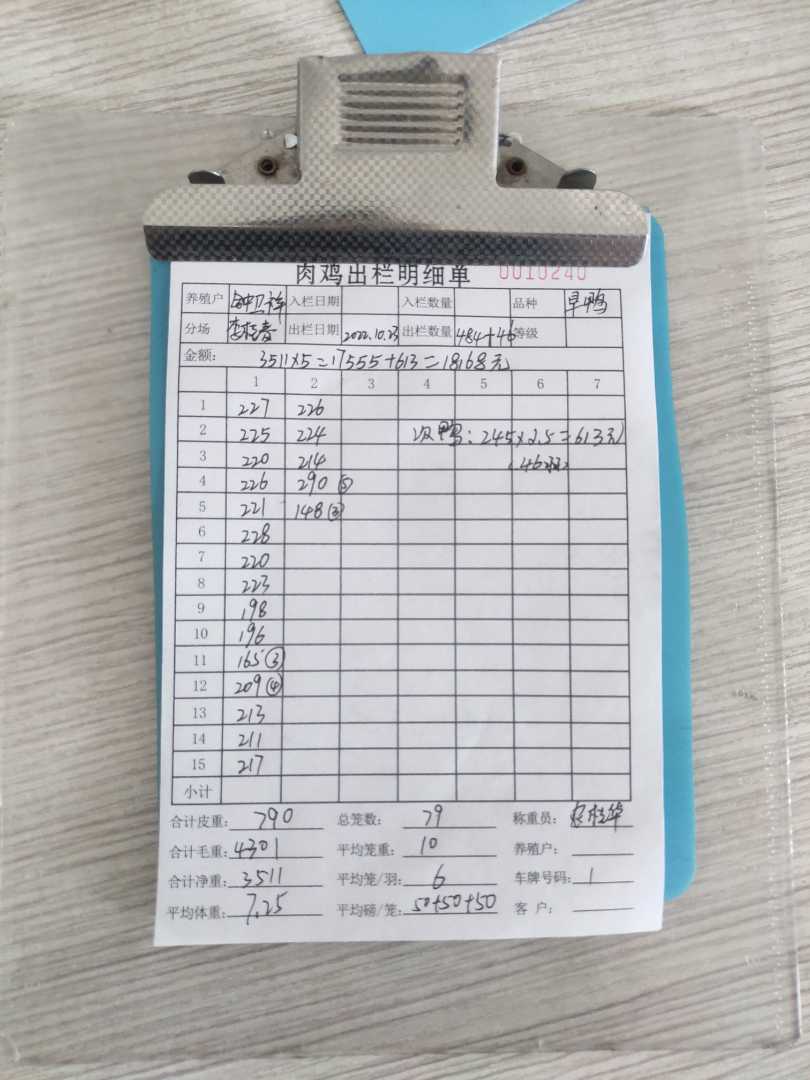 肉鸡出栏明细单 0010240
养殖户 入栏日期 入栏数量 品种 旱鸭
分场 李桂春 出栏日期 2022.10.23 出栏数量 484+46 等级
金额: 3511×5=17555+613=18168元
1 2 3 4 5 6 7
1 227 226
2 225 224 次鸭:245×2.5=613元
3 220 214 (46羽)
4 226 290 ⑤
5 221 148 ③
6 228
7 220
8 223
9 198
10 196
11 165 ③
12 209 ④
13 213
14 211
15 217
小计
合计皮重: 790 总笼数: 79 称重员:
合计毛重: 4301 平均笼重: 10 养殖户:
合计净重: 3511 平均笼/羽: 6 车牌号码: 1
平均体重: 7.25 平均磅/笼: 50+50+50 客 户: